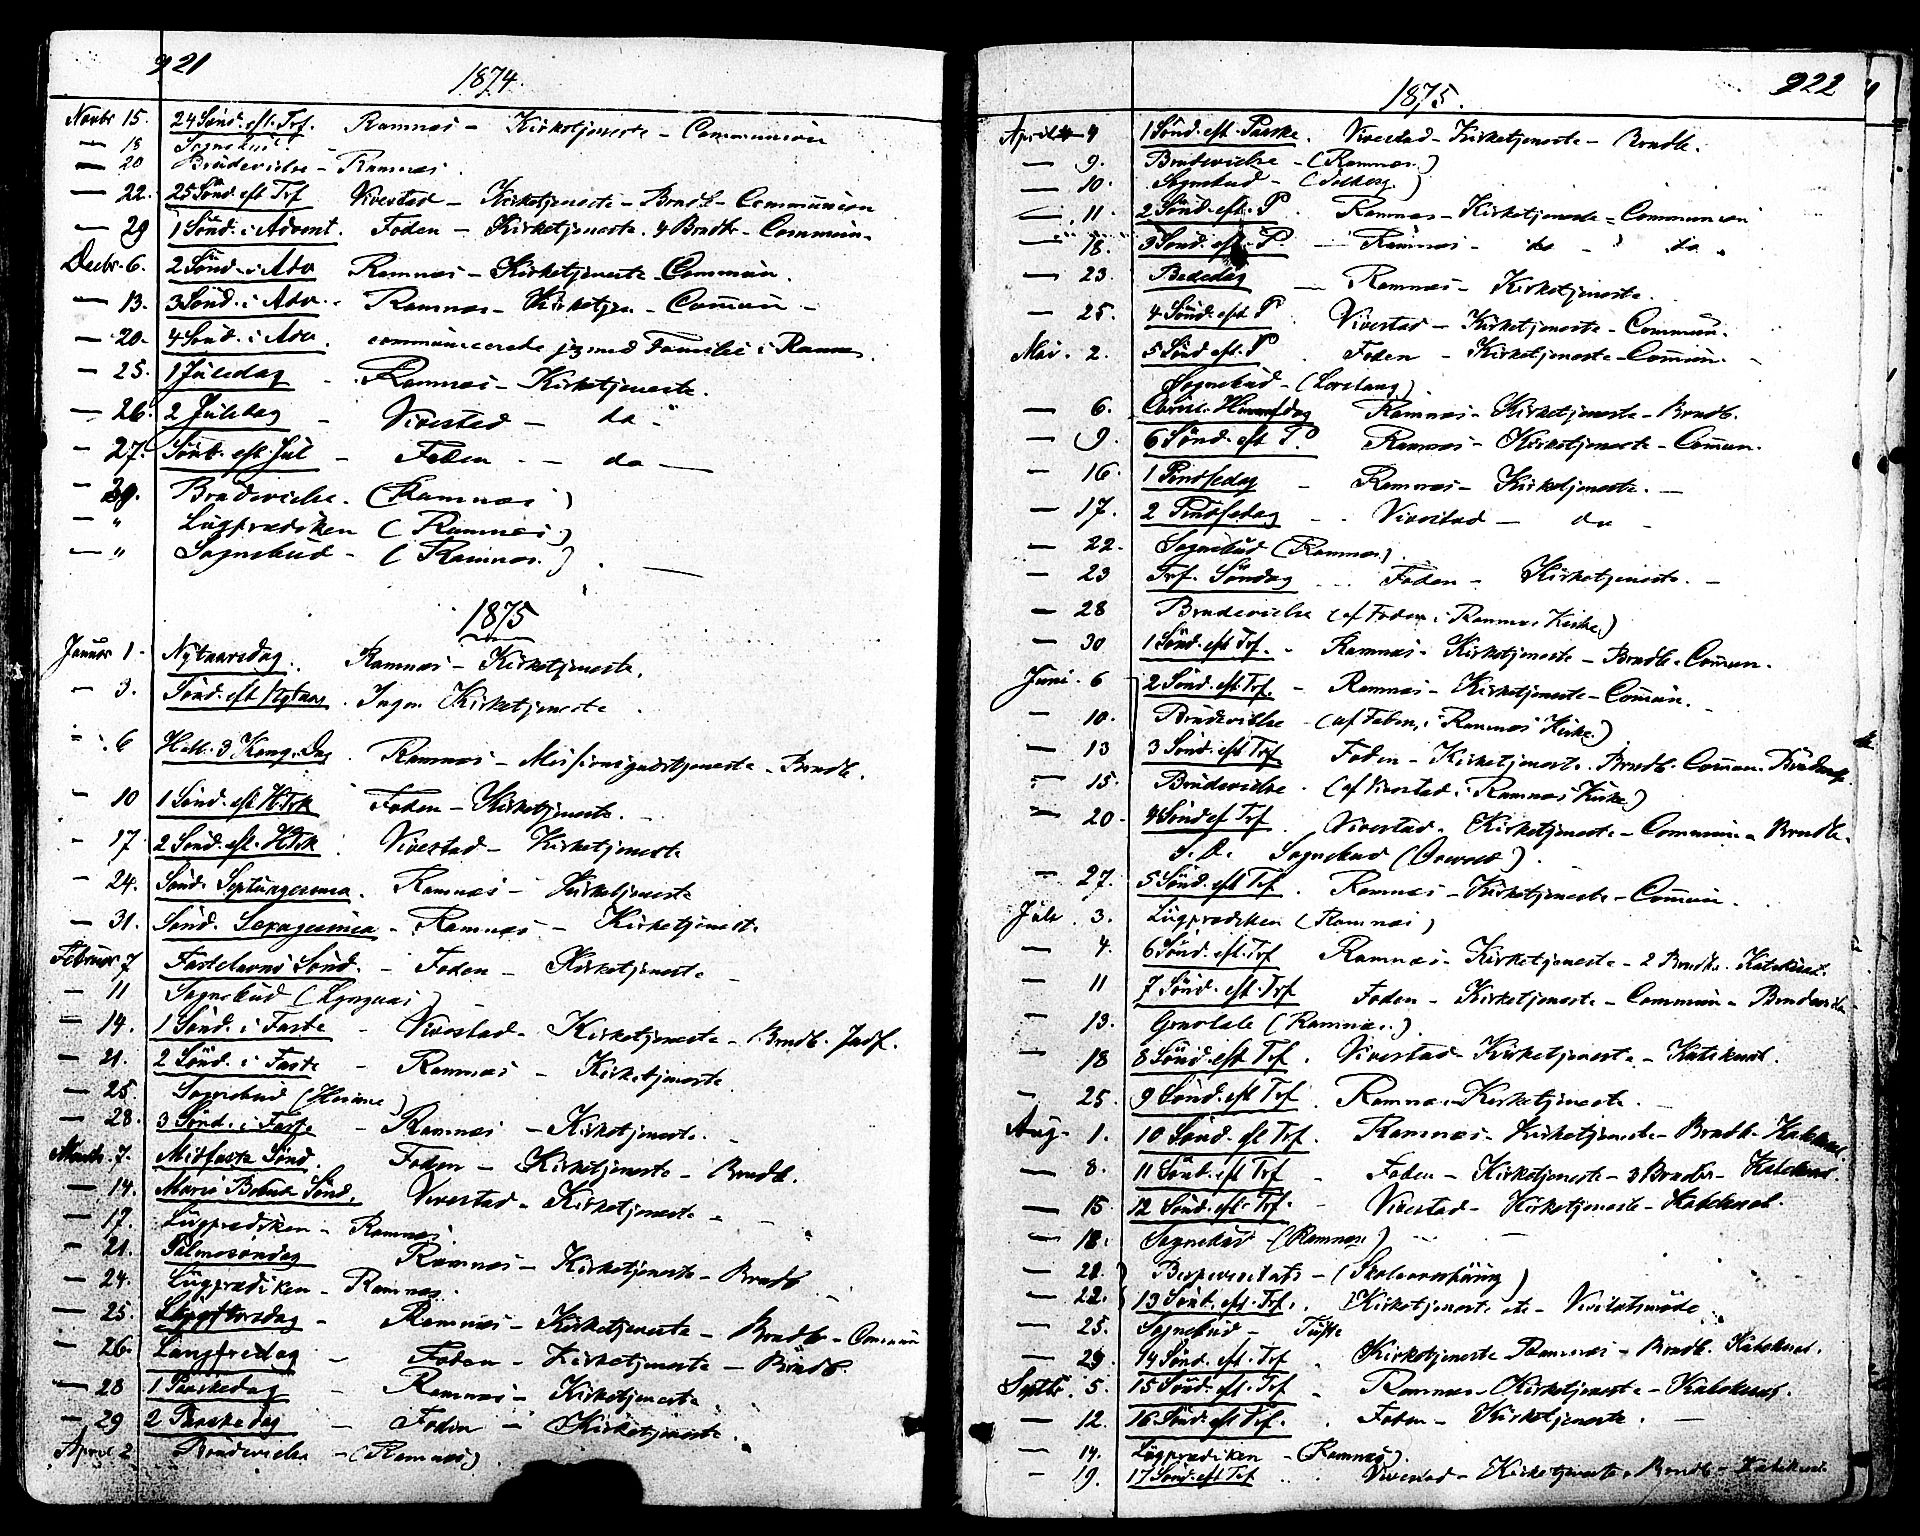 921
1874.
Novbr 15. 24 Sønd. eft. Trf. Ramnæs – Kirketjeneste – Communion
— 18 Sognebud
— 20 Brudevielse – Ramnæs.
— 22. 25 Sønd. eft Trf Vivestad – Kirketjeneste – Brndb – Communion
— 29 1 Sønd. i Advent. Foden – Kirketjeneste. 4 Brndb – Commun –
Decbr. 6. 2 Sønd. i Adv Ramnæs – Kirketjeneste – Commun.
— 13. 3 Sønd. i Adv. Ramnæs – Kirketjen – Commun –
— 20. 4 Sønd. i Adv. communicerede jeg med Familie i Ramnæs.
— 25. 1 Juledag – Ramnæs – Kirketjeneste.
— 26. 2 Juledag – Vivestad – do "
— 27. Sønd. eft. Jul – Foden – do —
— 29. Brudevielse. (Ramnæs)
— " Liigprædiken (Ramnæs)
— " Sognebud – (Ramnæs.)
1875
Januar 1. Nytaarsdag. Ramnæs – Kirketjeneste.
– 3. Sønd. eft Nytaar. Ingen Kirketjeneste.
" 6 Hell. 3 Kong. Dag Ramnæs – Missionsgudstjeneste – Brndb.
– 10 1 Sønd. eft H3K Foden – Kirketjeneste. –
– 17. 2 Sønd. eft. H3K. Vivestad – Kirketjeneste
– 24. Sønd. Septuagesima. Ramnæs – Kirketjeneste
– 31. Sønd. Sexagesima – Ramnæs – Kirketjeneste
Februar 7 Fastelavns Sønd. – Foden – Kirketjeneste –
– 11 Sognebud (Lyngaas)
– 14. 1 Sønd. i Faste – Vivestad – Kirketjeneste – Brndb.
– 21. 2 Sønd. i Faste – Ramnæs – Kirketjeneste.
– 25. Sognebud
– 28. 3 Sønd. i Faste – Ramnæs – Kirketjeneste. –
Marts. 7. Midfaste Sønd. Foden – Kirketjeneste – Brndb.
– 14. Mariæ Bebud. Sønd. Vivestad – Kirketjeneste –
– 17. Liigprædiken – Ramnæs.
– 21. Palmesøndag Ramnæs – Kirketjeneste – Brndb
– 24. Liigprædiken – Ramnæs.
— 25. Skjærthorsdag – Ramnæs – Kirketjeneste – Brndb – Commun
– 26. Langfredag – Foden – Kirketjeneste – Brndb.
— 28 1 Paaskedag – Ramnæs – Kirketjeneste
– 29 2 Paaskedag – Foden – Kirketjeneste.
April 2 Brudevielse – (Ramnæs).
922
1875.
April 4 1 Sønd. eft. Paaske. Vivestad – Kirketjeneste – Brndb.
— 9. Brudevielse – (Ramnæs.)
— 10. Sognebud – (Solberg)
— 11. 2 Sønd. eft. P. Ramnæs – Kirketjeneste – Communion
— 18. 3 Sønd. eft. P – Ramnæs – do – do
— 23. Bededag — Ramnæs – Kirketjeneste.
— 25. 4 Sønd. eft P Vivestad – Kirketjeneste – Commun.
Mai. 2. 5 Sønd eft. P. Foden – Kirketjeneste – Commun. –
Sognebud –
— 6. Christi Himmelfdag Ramnæs – Kirketjeneste – Brndb.
— 9. 6 Sønd. eft P. Ramnæs – Kirketjeneste – Commun.
— 16. 1 Pindsedag – Ramnæs – Kirketjeneste. —
— 17. 2 Pindsedag – Vivestad — do –
— 22. Sognebud (Ramnæs).
— 23 Trf. Søndag Foden – Kirketjeneste. –
— 28 Brudevielse (af Foden i Ramnæs Kirke)
— 30 1 Sønd. eft Trf. – Ramnæs – Kirketjeneste – Brndb – Commun.
Juni. 6 2 Sønd. eft Trf. – Ramnæs – Kirketjeneste – Commun.
— 10. Brudevielse – (af Foden, i Ramnæs Kirke)
— 13 3 Sønd. eft Trf Foden – Kirketjeneste. Brndb. Commun.
— 15. Brudevielse. (af Vivestad i Ramnæs Kirke)
— 20. 4 Sønd ef Trf. Vivestad. Kirketjeneste – Commun – Brndb.
S. D. Sognebud
— 27. 5 Sønd. eft Trf. Ramnæs – Kirketjeneste – Commun.
Juli. 3. Liigprædiken (Ramnæs)
— 4. 6 Sønd. eft. Trf Ramnæs – Kirketjeneste – 2 Brndb. Katekisat.
— 11 7 Sønd. eft. Trf Foden – Kirketjeneste – Commun –
— 13. Gravtale (Ramnæs.)
— 18 8 Sønd. eft Trf. Vivestad – Kirketjeneste – Katekisat.
— 25. 9 Sønd. eft Trf. Ramnæs – Kirketjeneste.
Aug. 1. 10 Sønd. eft Trf. Ramnæs – Kirketjeneste – Brndb – Katekisat.
— 8. 11 Sønd. eft Trf – Foden – Kirketjeneste – 3 Brndb – Katekisat.
— 15. 12 Sønd. eft. Trf. – Vivestad – Kirketjeneste – Katekisat.
— 18. Sognebud – (Ramnæs)
— 21. Bispevisitats – (Skoleoverhøring)
— 22. 13 Sønd. eft. Trf. Kirketjeneste etc – Visitatsmøde.
— 25. Sognebud –
— 29. 14 Sønd. eft. Trf. Kirketjeneste Ramnæs – Brndb. Katekisat.
Septbr. 5. 15 Sønd. eft. Trf – Ramnæs – Kirketjeneste – Katekisat.
— 12. 16 Sønd. eft Trf. Foden – Kirketjeneste. —
— 14. Liigprædiken – (Ramnæs).
– 19. 17 Sønd. eft Trf Vivestad – Kirketjeneste. Brndb – Katekisat.